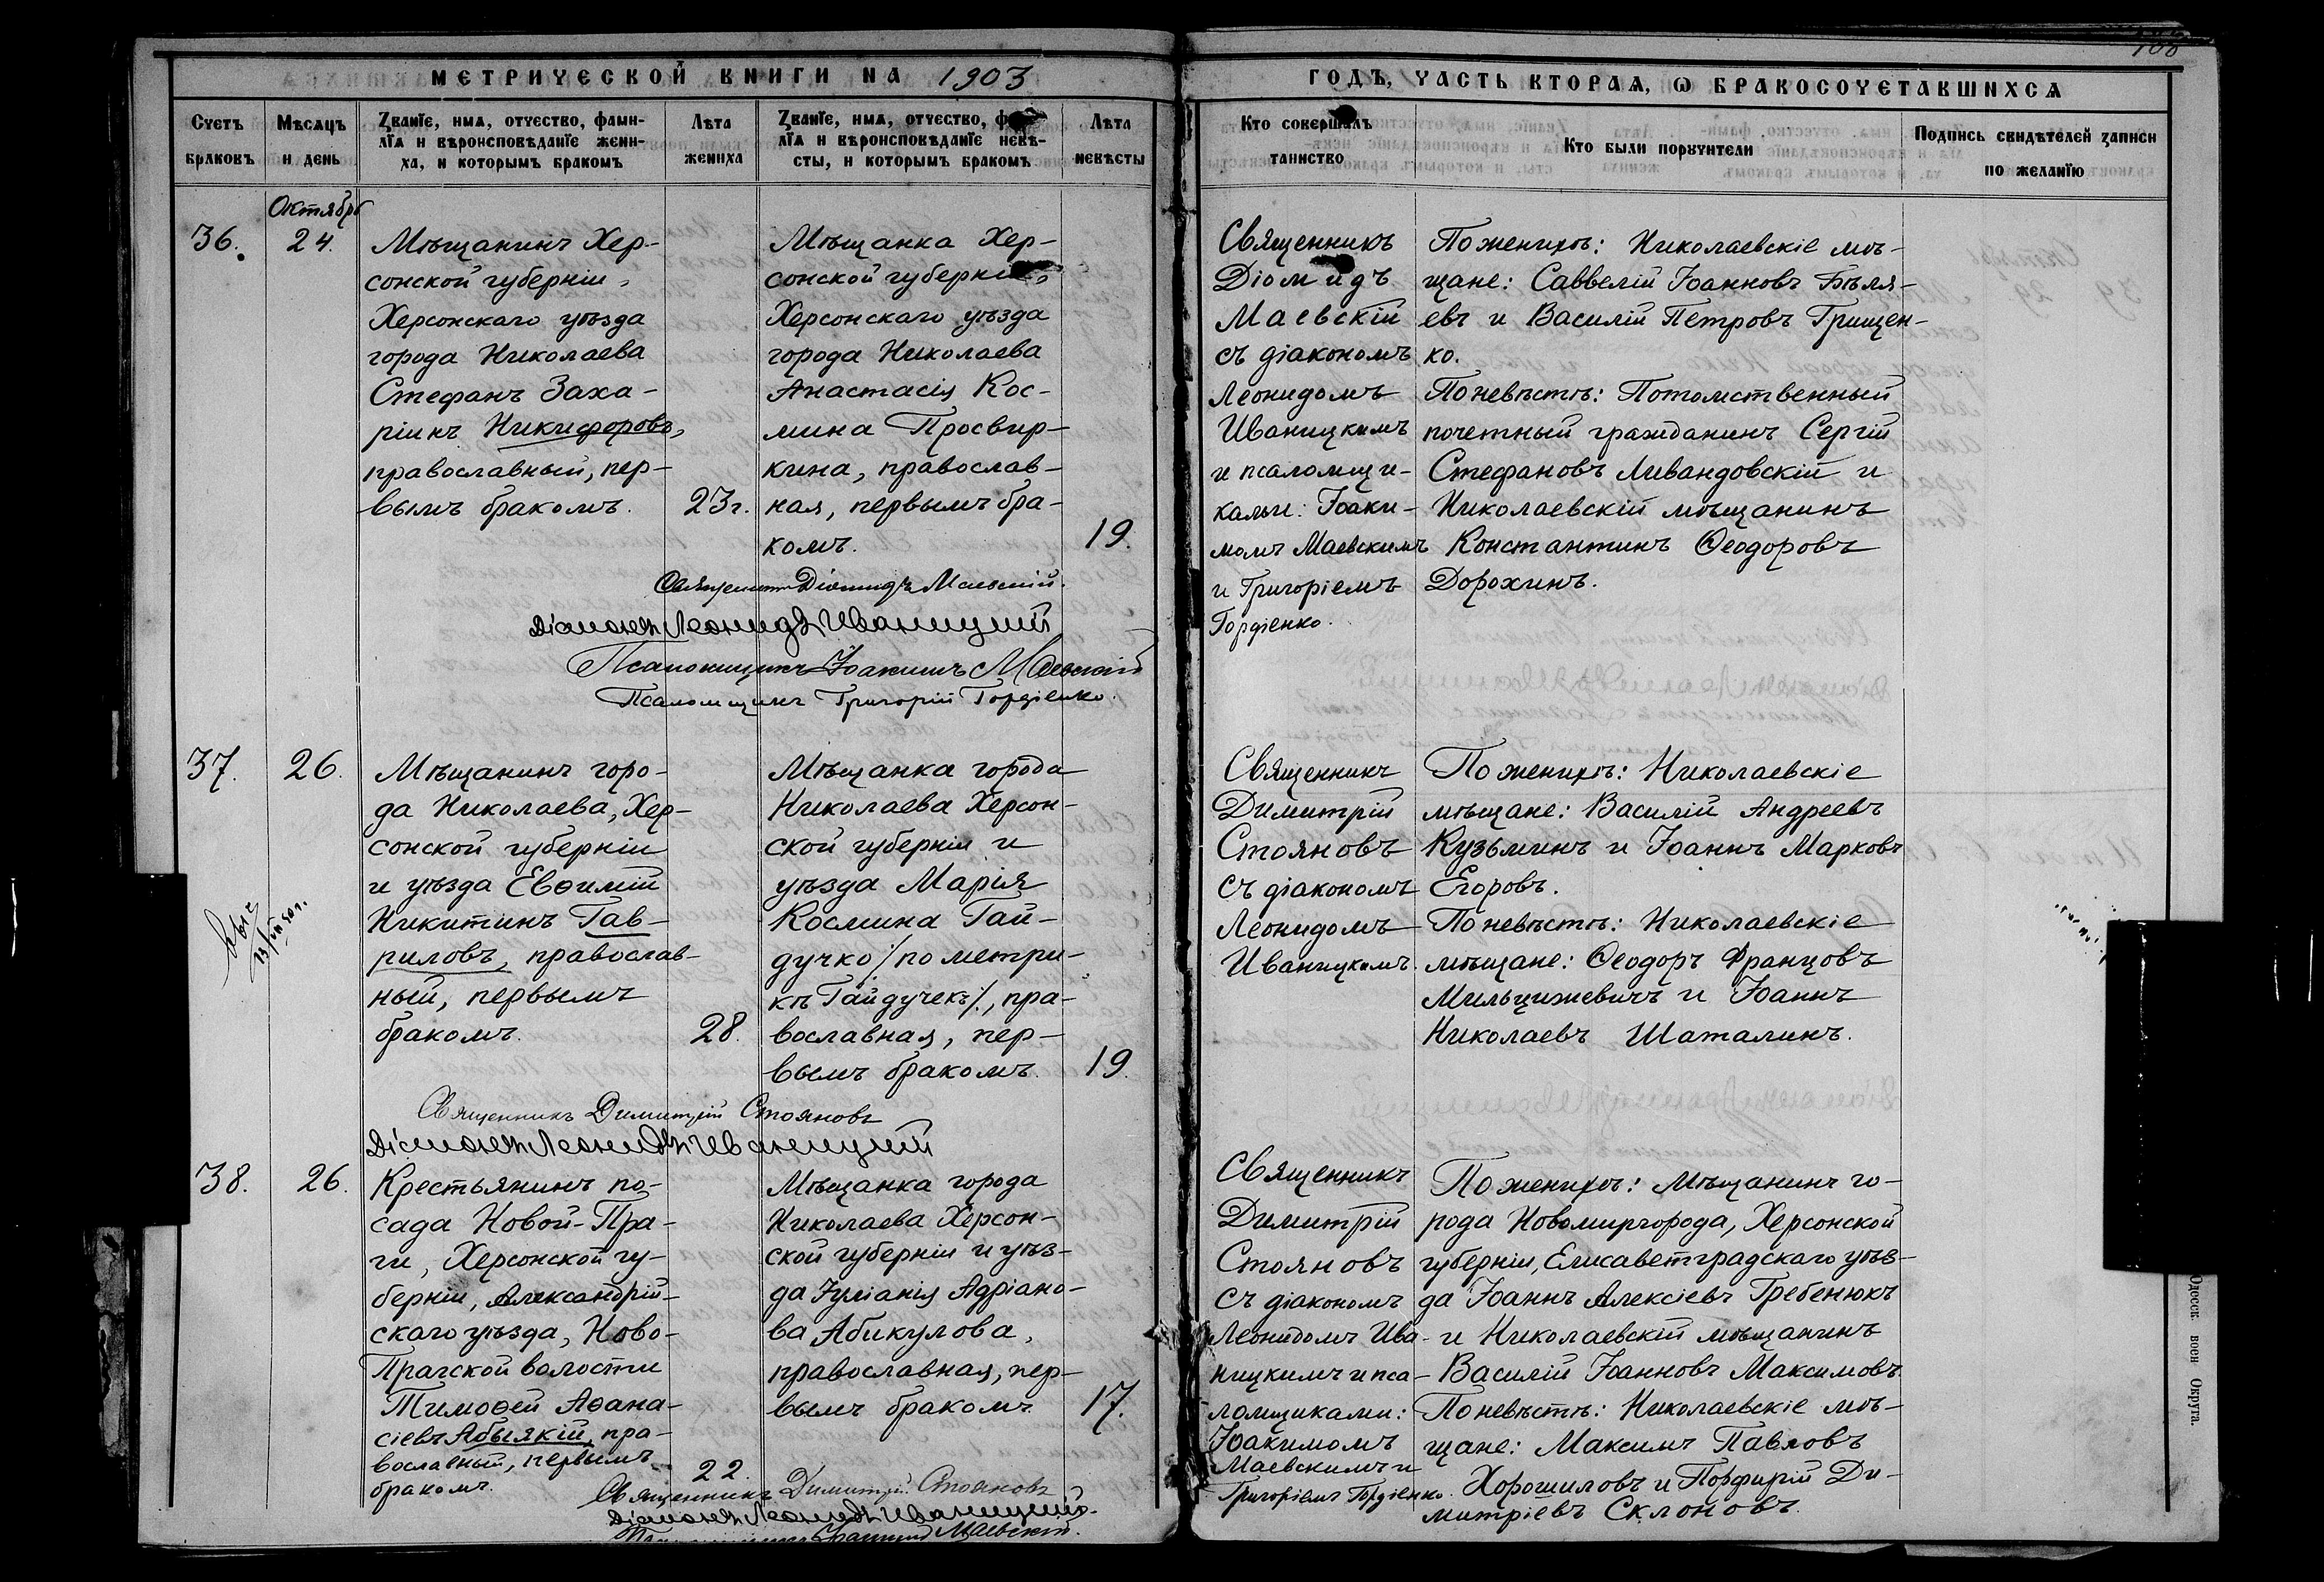 МЕТРИЧЕСКОЙ КНИГИ НА 1903
ГОДЪ, ЧАСТЬ ВТОРАЯ, Ѡ БРАКОСОЧЕТАВШИХСЯ
Счетъ браковъ
Мѣсяцъ и день
Званіе, имя, отчество, фами-
лія и вѣроисповѣданіе жени-
ха, и которымъ бракомъ
Лѣта жениха
Званіе, имя, отчество, фами-
лія и вѣроисповѣданіе невѣ-
сты, и которымъ бракомъ
Лѣта невѣсты
Кто совершалъ таинство
Кто были поручители
Подпись свидѣтелей записи
по желанію
Октябрь
36.
24.
Мѣщанинъ Хер-
сонской губерніи,
Херсонскаго уѣзда
города Николаева
Стефанъ Заха-
ріинъ Никифоровъ,
православный, пер-
вымъ бракомъ.
23г.
Мѣщанка Хер-
сонской губерніи,
Херсонскаго уѣзда
города Николаева
Анастасія Кос-
мина Просвир-
кина, православ-
ная, первымъ бра-
комъ.
19.
Священникъ
Діомидъ
Маевскій
съ діакономъ
Леонидомъ
Иваницкимъ
и псаломщи-
ками: Іоаки-
момъ Маевскимъ
и Григоріемъ
Гордіенко.
По женихѣ: Николаевскіе мѣ-
щане: Саввелій Іоанновъ Бѣля-
евъ и Василій Петровъ Грищен-
ко.
По невѣстѣ: Потомственный
почетный гражданинъ Сергій
Стефановъ Ливандовскій и
Николаевскій мѣщанинъ
Константинъ Ѳеодоровъ
Дорохинъ.
Священникъ Діомидъ Маевскій.
Діаконъ Леонидъ Иваницкій
Псаломщикъ Іоакимъ Маевскій
Псаломщикъ Григорій Гордіенко.
37.
26.
Мѣщанинъ горо-
да Николаева, Хер-
сонской губерніи
и уѣзда Евѳимій
Никитинъ Гав-
риловъ, православ-
ный, первымъ
бракомъ.
28.
Мѣщанка города
Николаева Херсон-
ской губерніи и
уѣзда Марія
Космина Гай-
дучко /по метри-
кѣ Гайдучекъ/, пра-
вославная, пер-
вымъ бракомъ.
19.
Священникъ
Димитрій
Стояновъ
съ діакономъ
Леонидомъ
Иваницкимъ.
По женихѣ: Николаевскіе
мѣщане: Василій Андреевъ
Кузьминъ и Іоаннъ Марковъ
Егоровъ.
По невѣстѣ: Николаевскіе
мѣщане: Ѳеодоръ Францовъ
Мильцижевичъ и Іоаннъ
Николаевъ Шаталинъ.
Священникъ Димитрій Стояновъ
Діаконъ Леонидъ Иваницкій
38.
26.
Крестьянинъ по-
сада Новой-Пра-
ги, Херсонской гу-
берніи, Александрій-
скаго уѣзда, Ново-
Прагской волости
Тимоѳей Аѳана-
сіевъ Абыякій, пра-
вославный, первымъ
бракомъ.
22.
Мѣщанка города
Николаева Херсон-
ской губерніи и уѣз-
да Іуліанія Адріано-
ва Абикулова,
православная, пер-
вымъ бракомъ.
17.
Священникъ
Димитрій
Стояновъ
съ діакономъ
Леонидомъ Ива-
ницкимъ и пса-
ломщиками:
Іоакимомъ
Маевскимъ и
Григоріемъ Гордіенко.
По женихѣ: Мѣщанинъ го-
рода Новомиргорода, Херсонской
губерніи, Елисаветградскаго уѣз-
да Іоаннъ Алексіевъ Гребенюкъ
и Николаевскій мѣщанинъ
Василій Іоанновъ Максимовъ.
По невѣстѣ: Николаевскіе мѣ-
щане: Максимъ Павловъ
Хорошиловъ и Порфирій Ди-
митріевъ Склоновъ.
Священникъ Димитрій Стояновъ
Діаконъ Леонидъ Иваницкій.
Псаломщикъ Іоакимъ Маевскій.
Одесск. воен Округа.